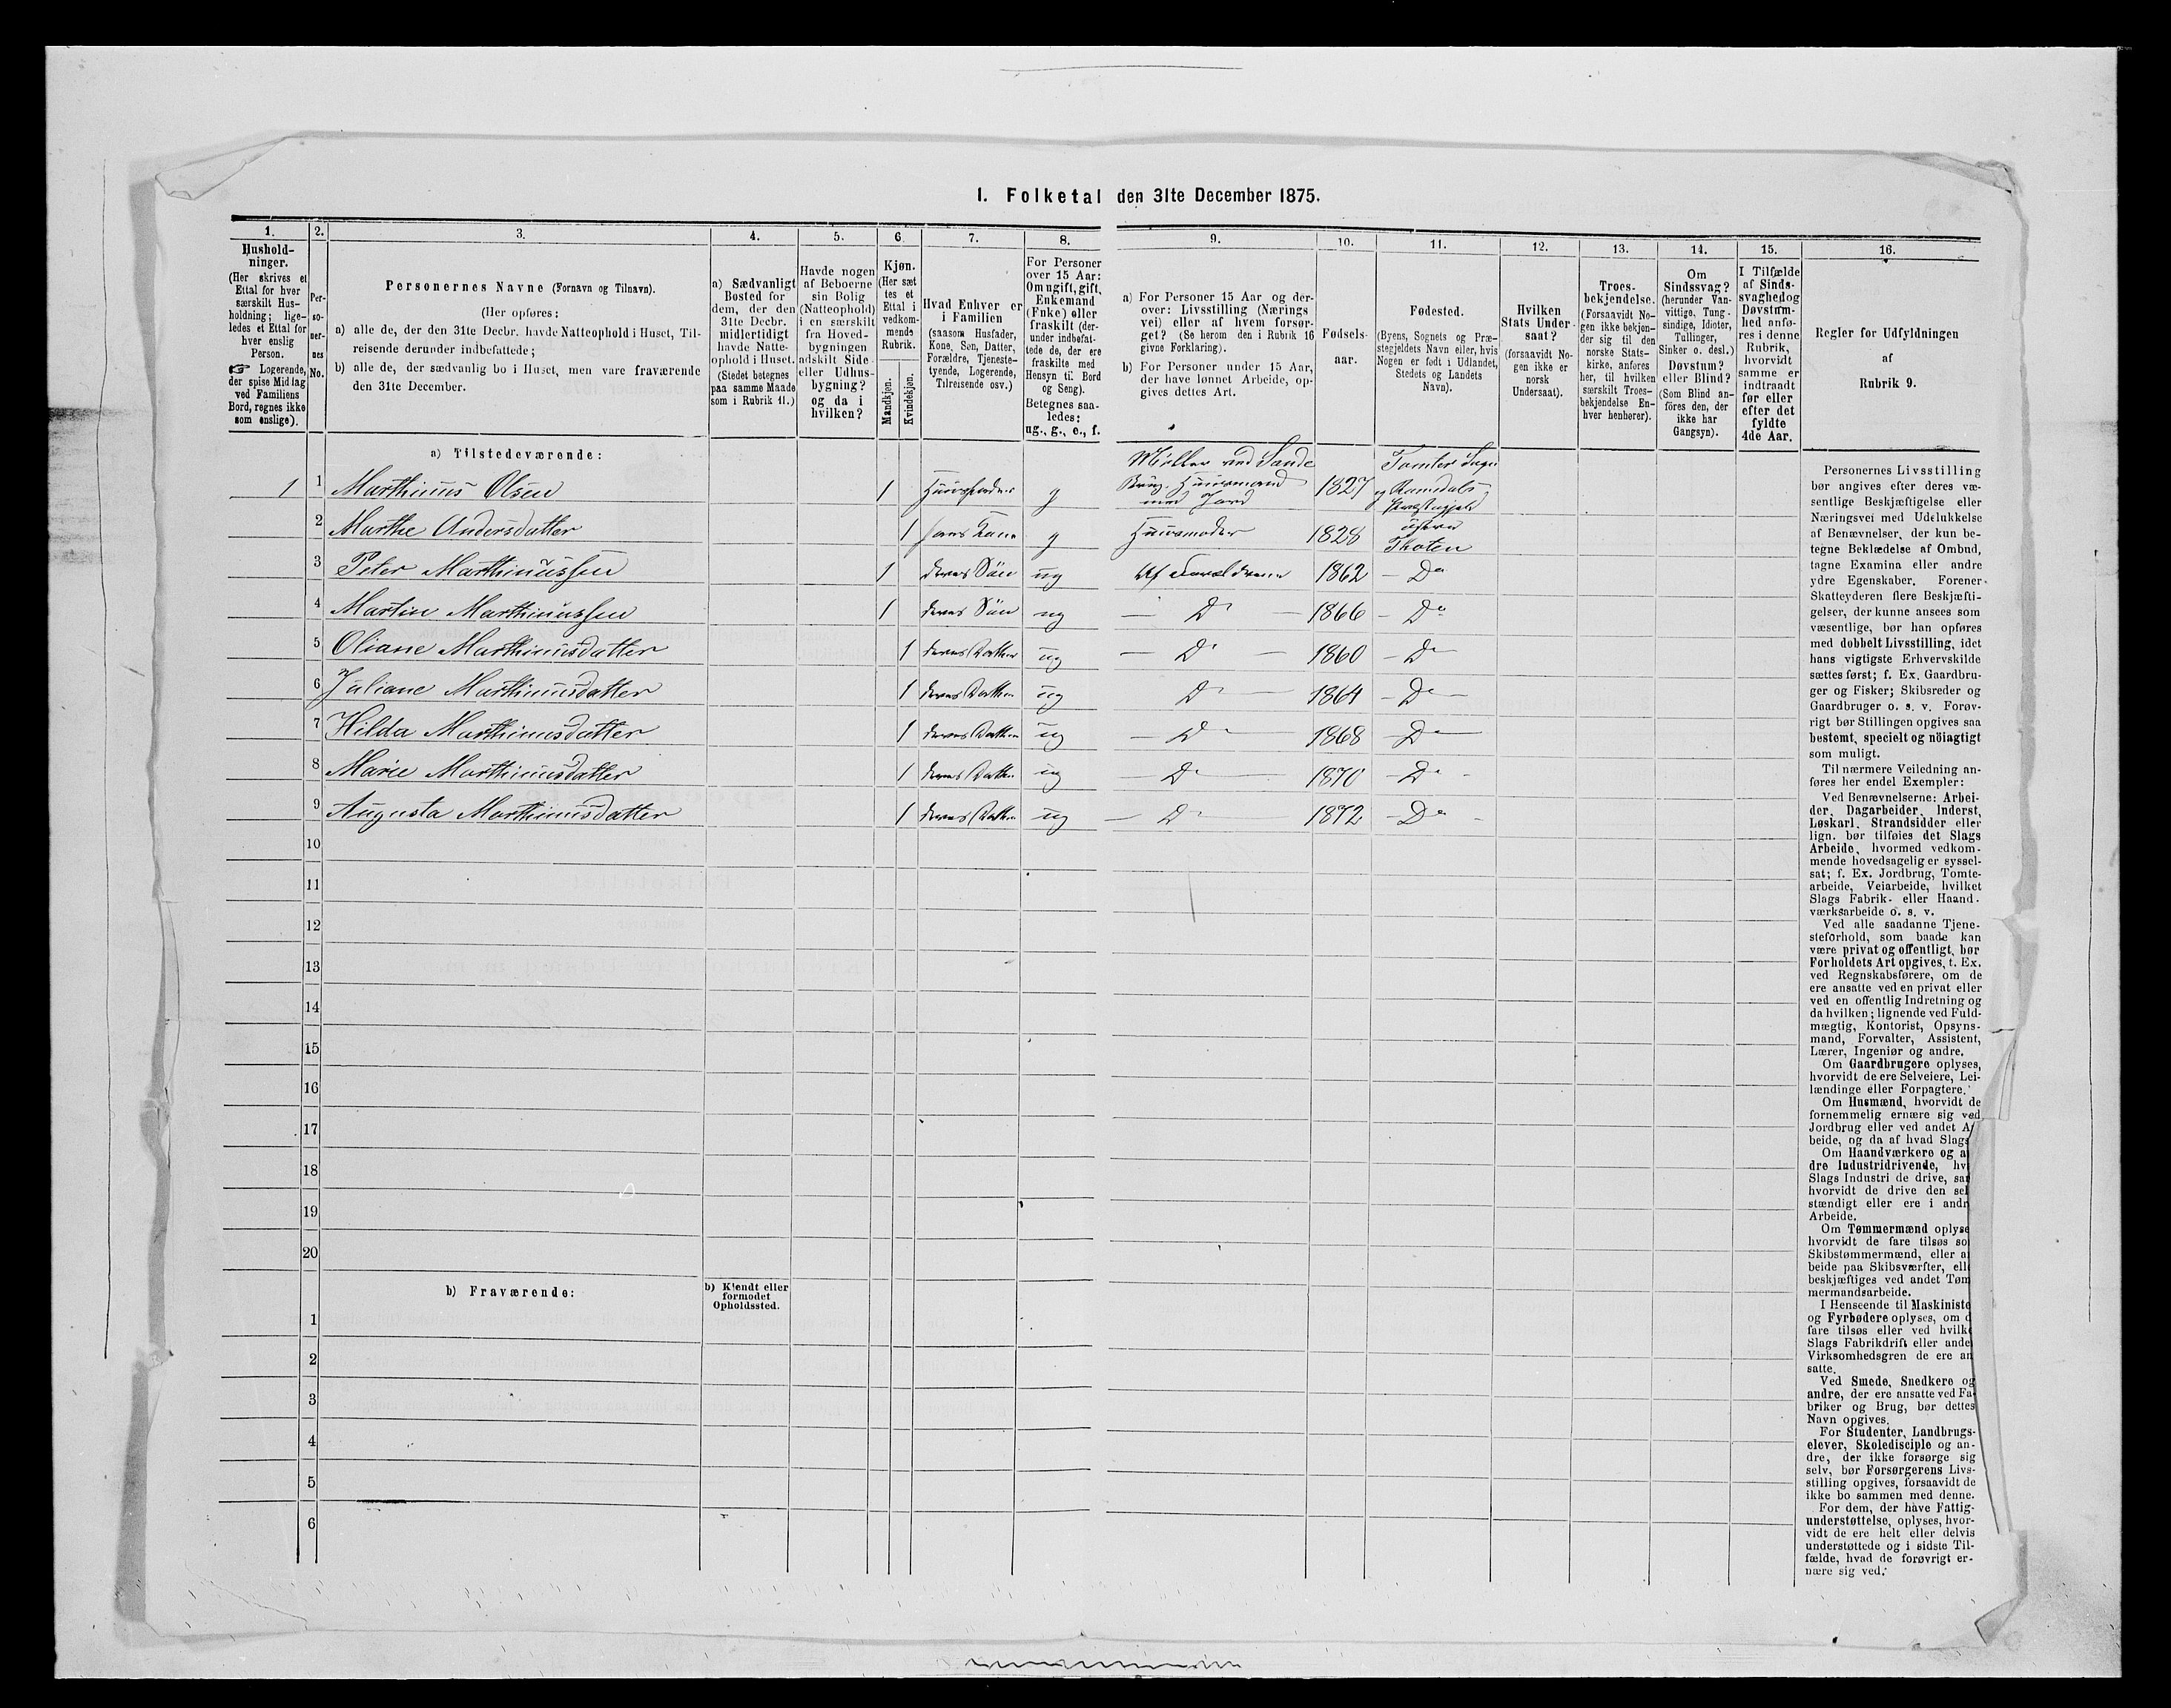 1. Folketal den 31te December 1875.
1.
Hushold-
ninger.
(Her skrives et
Ettal for hver
særskilt Hus-
holdning; lige-
ledes et Ettal for
hver enslig
Person.
☞ Logerende,
der spise Middag
ved Familiens
Bord, regnes ikke
som enslige).
2.
Per-
so-
ner-
nes
No.
3.
Personernes Navne (Fornavn og Tilnavn).
(Her opføres:
a) alle de, der den 31te Decbr. havde Natteophold i Huset, Til-
reisende derunder indbefattede;
b) alle de, der sædvanlig bo i Huset, men vare fraværende
den 31te December.
4.
a) Sædvanligt
Bosted for
dem, der den
31te Decbr.
midlertidigt
havde Natte-
ophold i Huset.
(Stedet betegnes
paa samme Maade
som i Rubrik 11.)
5.
Havde nogen
af Beboerne
sin Bolig
(Natteophold)
i en særskilt
fra Hoved-
bygningen
adskilt Side-
eller Udhus-
bygning?
og da i
hvilken?
6.
Kjøn.
(Her sæt
tes et
Ettal i
vedkom-
mende
Rubrik.
Mandkjøn.
Kvindekjøn.
7.
Hvad Enhver er
i Familien
(saasom Husfader,
Kone, Søn, Datter,
Forældre, Tjeneste-
tyende, Logerende,
Tilreisende osv.)
8.
For Personer
over 15 Aar:
Om ugift, gift,
Enkemand
(Enke) eller
fraskilt (der-
under indbefat-
tede de, der ere
fraskilte med
Hensyn til Bord
og Seng).
Betegnes saa-
ledes:
ug., g., e., f.
9.
a) For Personer 15 Aar og der-
over: Livsstilling (Nærings
vei) eller af hvem forsør-
get? (Se herom den i Rubrik 16
givne Forklaring).
b) For Personer under 15 Aar,
der have lønnet Arbeide, op-
gives dettes Art.
10.
Fødsels-
aar.
11.
Fødested.
(Byens, Sognets og Præ-
stegjeldets Navn eller, hvis
Nogen er født i Udlandet,
Stedets og Landets
Navn).
12.
Hvilken
Stats Under-
saat?
(forsaavidt No-
gen ikke er
norsk
Undersaat).
13.
Troes-
bekjendelse.
(Forsaavidt No-
gen ikke bekjen-
der sig til den
norske Stats-
kirke, anføres
her, til hvilken
særskilt Troes-
bekjendelse En-
hver henhører).
14.
Om
Sindssvag?
(herunder Van-
vittige, Tung-
sindige, Idioter,
Tullinger,
Sinker o. desl.)
Døvstum?
eller Blind?
(Som Blind an-
føres den, der
ikke har
Gangsyn).
15.
I Tilfælde
af Sinds-
svaghed og
Døvstum-
hed anfø-
res i denne
Rubrik,
hvorvidt
samme er
indtraadt
før eller
efter det
fyldte
4de Aar.
16.
Regler for Udfyldningen
af
Rubrik 9.
a) Tilstedeværende:
1 1 Marthinus Olsen 1 Huusfader g Møller ved Sande Brug. Huusmand med Jord 1827 Tomter Sogn og Præstegjeld
2 Marthe Andersdatter 1 hans Kone g Huusmoder 1828 østre Thoten
3 Peter Marthinussen 1 deres Søn ug Af Forældrene 1862 — Do
4 Martin Marthinussen 1 deres Søn ug — Do — 1866 — Do
5 Oliane Marthinusdatter 1 deres Datter ug — Do — 1860 — Do
6 Juliane Marthinusdatter 1 deres Datter ug Do — 1864 — Do —
7 Hilda Marthinusdatter 1 deres Datter ug — Do — 1868 — Do —
8 Marie Marthinusdatter 1 deres Datter ug — Do — 1870 — Do -
9 Augusta Marthinusdatter 1 deres Datter ug — Do 1872 — Do -
10
11
12
13
14
15
16
17
18
19
20
b) Fraværende:
b) Kjendt eller
formodet
Opholdssted.
1
2
3
4
5
6
Personernes Livsstilling
bør angives efter deres væ-
sentlige Beskjæftigelse eller
Næringsvei med Udelukkelse
af Benævnelser, der kun be-
tegne Beklædelse af Ombud,
tagne Examina eller andre
ydre Egenskaber. Forener
Skatteyderen flere Beskjæfti-
gelser, der kunne ansees som
væsentlige, bør han opføres
med dobbelt Livsstilling, idet
hans vigtigste Erhvervskilde
sættes først; f. Ex. Gaardbru-
ger og Fisker; Skibsreder og
Gaardbruger o. s. v. Forøv-
rigt bør Stillingen opgives saa
bestemt, specielt og nöiagtigt
som muligt.
Til nærmere Veiledning an-
føres her endel Exempler:
Ved Benævnelserne: Arbei-
der, Dagarbeider, Inderst,
Løskarl, Strandsidder eller
lign. bør tilføies det Slags
Arbeide, hvormed vedkom-
mende hovedsagelig er syssel-
sat; f. Ex. Jordbrug, Tomte-
arbeide, Veiarbeide, hvilket
Slags Fabrik- eller Haand-
værksarbeide o. s. v.
Ved alle saadanne Tjene-
steforhold, som baade kan
være privat og offentligt, bør
Forholdets Art opgives, t. Ex.
ved Regnskabsførere, om de
ere ansatte ved en privat eller
ved en offentlig Indretning og
da hvilken; lignende ved Fuld-
mægtig, Kontorist, Opsyns-
mand, Forvalter, Assistent,
Lærer, Ingeniør og andre.
Om Gaardbrugere oplyses,
hvorvidt de ere Selveiere, Lei-
lændinge eller Forpagtere.
Om Husmænd, hvorvidt de
fornemmelig ernære sig ved
Jordbrug eller ved andet A
beide, og da af hvad Slags
Om Haandværkere og a
dre Industridrivende, hv
Slags Industri de drive, sa
hvorvidt de drive den sel
stændigt eller ere i andr
Arbeide.
Om Tømmermænd oplyse
hvorvidt de fare tilsøs so
Skibstømmermænd, eller a
beide paa Skibsværfter, ell
beskjæftiges ved andet Tøm
mermandsarbeide.
I Henseende til Maskiniste
og Fyrbødere oplyses, om d
fare tilsøs eller ved hvilke
Slags Fabrikdrift eller ande
Virksomhedsgren de ere an
satte.
Ved Smede, Snedkere og
andre, der ere ansatte ved Fa-
briker og Brug, bør dettes
Navn opgives.
For Studenter, Landbrugs-
elever, Skoledisciple og an-
dre, der ikke forsørge sig
selv, bør Forsørgerens Livs-
stilling opgives, forsaavidt de
ikke bo sammen med denne.
For dem, der have Fattig-
understøttelse, oplyses, hvor-
vidt de ere helt eller delvis
understøttede og i sidste Til-
fælde, hvad de forøvrigt er-
nære sig ved.